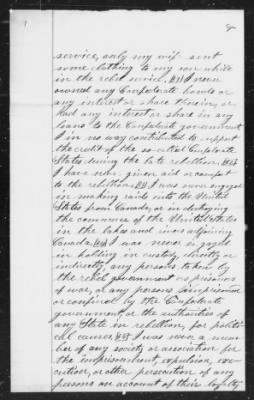 service, only my wife sent
some clothing to my son while
in the rebel service. I never
owned any Confederate bonds or
any interest or share therein, or
had any interest or share in any
loans to the Confederate government
I in no way contributed to support
the credit of the so-called Confederate
States during the late rebellion.
I have never given aid or comfort
to the rebellion. I was never engaged
in making raids into the United
States from Canada, or in destroying
the commerce of the United States
in the lakes and rivers adjoining
Canada. I was never engaged
in holding in custody, directly or
indirectly, any persons taken by
the rebel government as prisoners
of war, or any persons imprisoned
or confined by the Confederate
government, or the authorities of
any State in rebellion, for politi
cal causes. I was never a mem
ber of any society or association for
the imprisonment, expulsion, exe
cution, or other persecution of any
persons on account of their loyalty